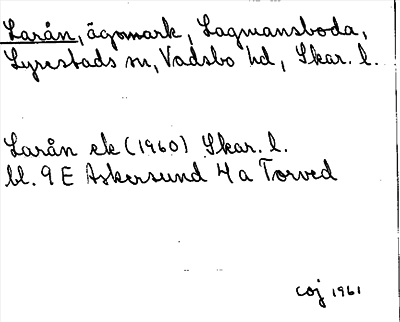 Larån, ägomark, Lagmansboda,
Lyrestads sn, Vadsbo hd, Skar. l.
Larån ek (1960) Skar. l.
bl. 9 E Askersund 4 a Torved
coj 1961